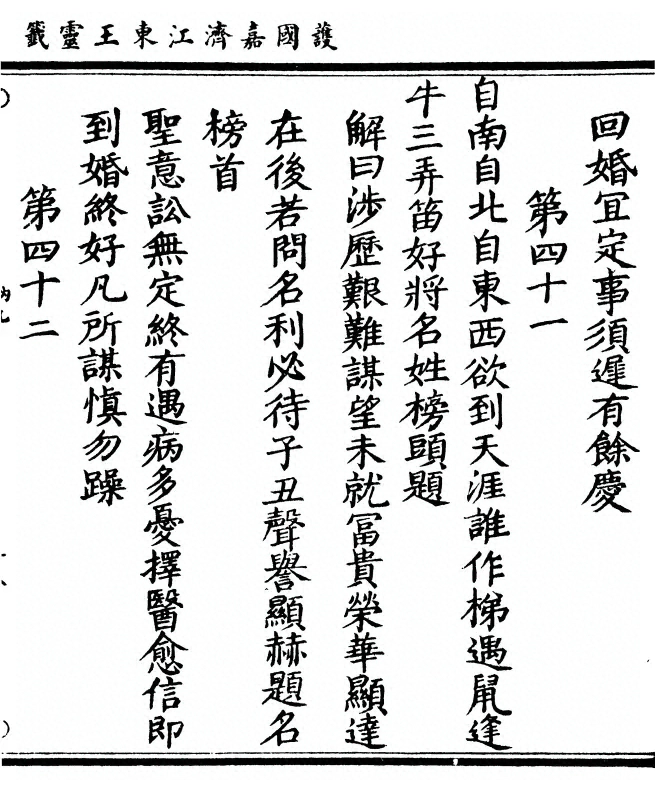 護國嘉濟江東王靈籤
回婚宜定事須遲有餘慶
第四十一
自南自北自東西欲到天涯誰作梯遇鼠逢
牛三弄笛好將名姓榜頭題
解曰涉歷艱難謀望未就冨貴榮華顯達
在後若問名利必待子丑聲譽顯赫題名
榜首
聖意訟無定終有遇病多憂擇醫愈信即
到婚終好凡所謀慎勿躁
第四十二